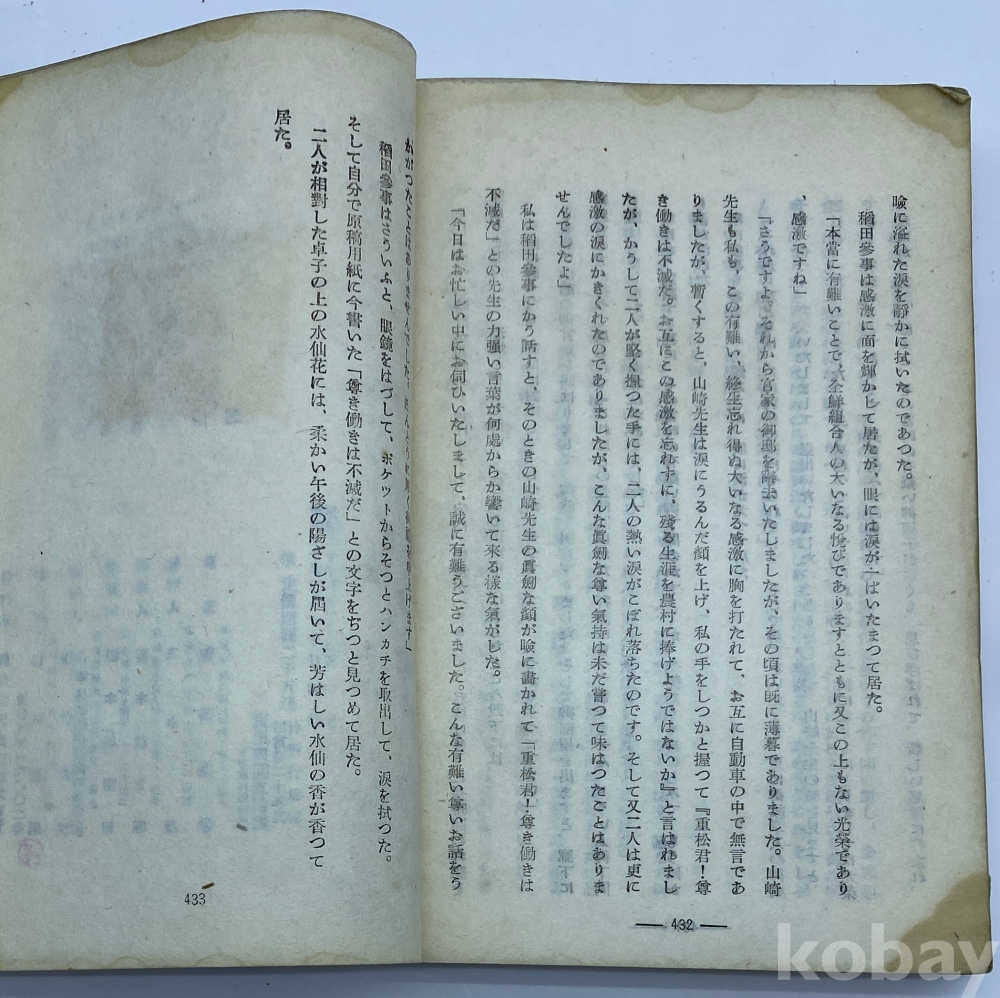 瞼に溢れた涙を靜かに拭いたのであつた。
稻田參事は感激に面を輝かして居たが、眼には涙が一ぱいたまつて居た。
「本當に有難いことで、全鮮組合人の大いなる悅びでありますとともに又この上もない光榮であり
、感激ですね」
「さうですよ。それから宮家の御邸を辭去いたしましたが、その頃は既に薄暮でありました。山崎
先生も私も、この有難い、終生忘れ得ぬ大いなる感激に胸を打たれて、お互に自動車の中で無言であ
りましたが、暫くすると、山崎先生は涙にうるんだ顏を上げ、私の手をしつかと握つて『重松君！尊
き働きは不滅だ。お互にこの感激を忘れずに、殘る生涯を農村に捧げようではないか』と言はれまし
たが、かうして二人が堅く握つた手には、二人の熱い涙がこぼれ落ちたのです。そして又二人は更に
感激の涙にかきくれたのでありましたが、こんな眞劍な尊い氣持は未だ嘗つて味はつたことはありま
せんでしたよ」
私は稻田參事にかう話すと、そのときの山崎先生の眞劍な顏が瞼に畵かれて「重松君！尊き働きは
不滅だ」との先生の力强い言葉が何處からか響いて來る樣な氣がした。
「今日はお忙しい中にお伺ひいたしまして、誠に有難うございました。こんな有難い尊いお話をう
— 432 —
稻田參事はさういふと、眼鏡をはづして、ポケットからそつとハンカチを取出して、涙を拭つた。
そして自分で原稿用紙に今書いた「尊き働きは不滅だ」との文字をぢつと見つめて居た。
二人が相對した卓子の上の水仙花には、柔かい午後の陽ざしが屆いて、芳はしい水仙の香が香つて
居た。
433
kobay